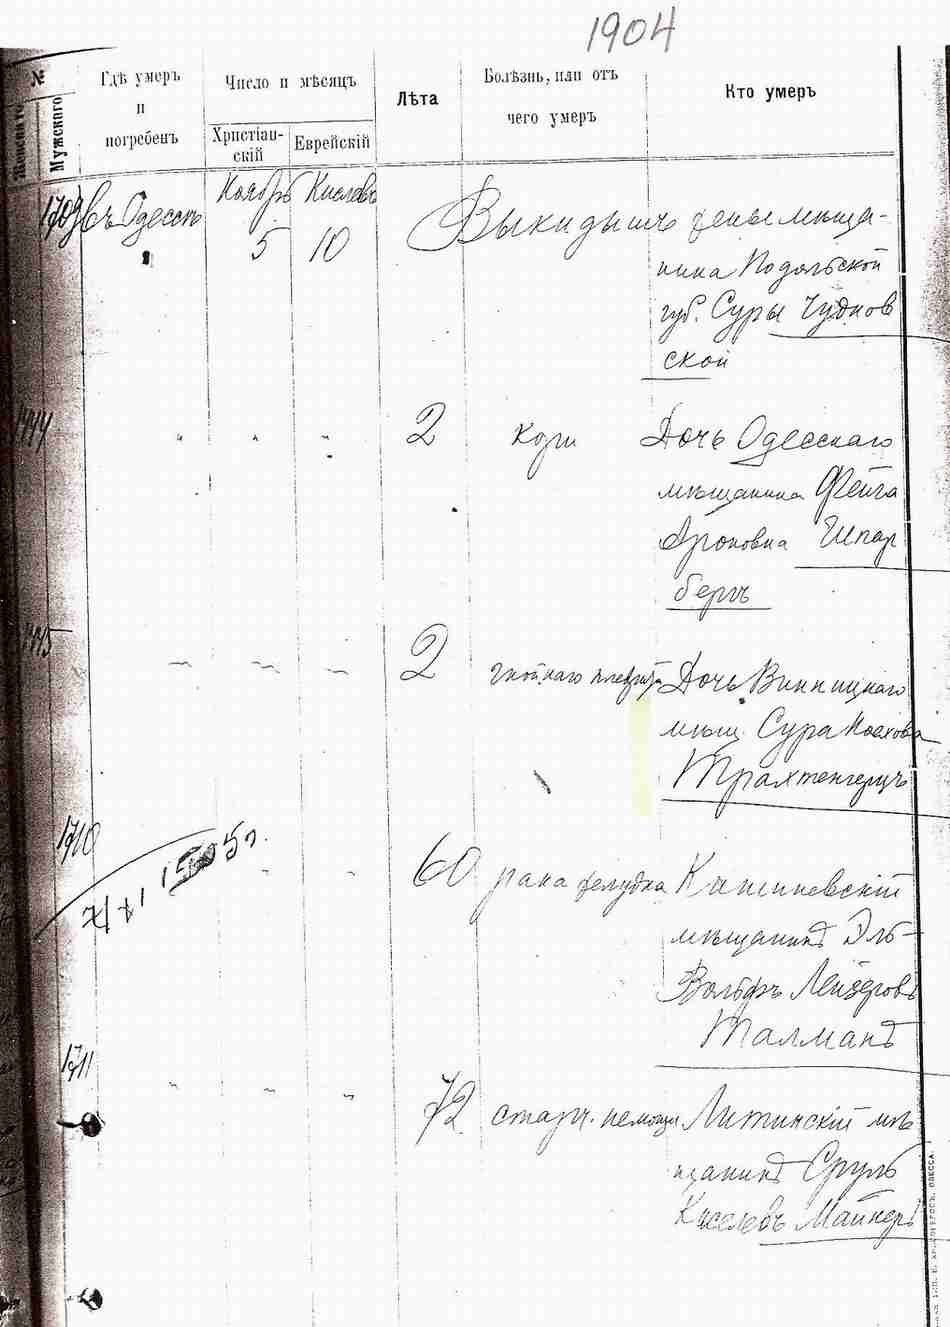 1904
№
Женскаго
Мужскаго
Гдѣ умеръ
и
погребенъ
Число и мѣсяцъ
Христіан-
скій
Еврейскій
Лѣта
Болѣзнь, или отъ
чего умеръ
Кто умеръ
1709 Въ Одессѣ Ноябрь Кислевъ
5 10 Выкидышъ жены мѣща-
нина Подольской
губ. Суры Чуднов
ской
2 кори Дочь Одесскаго
мѣщанина Фейга
Ароновна Шпар
бергъ
2 гнойнаго плеврита Дочь Винницкаго
мѣщ. Сура
Трахтенгерцъ
1710
60 рака желудка Кишиневскій
мѣщанинъ Эль-
Вольфъ Лейзеровъ
Талманъ
1711
72 старч. немощи Литинскій мѣ
щанинъ Сруль
Киселевъ Майнеръ